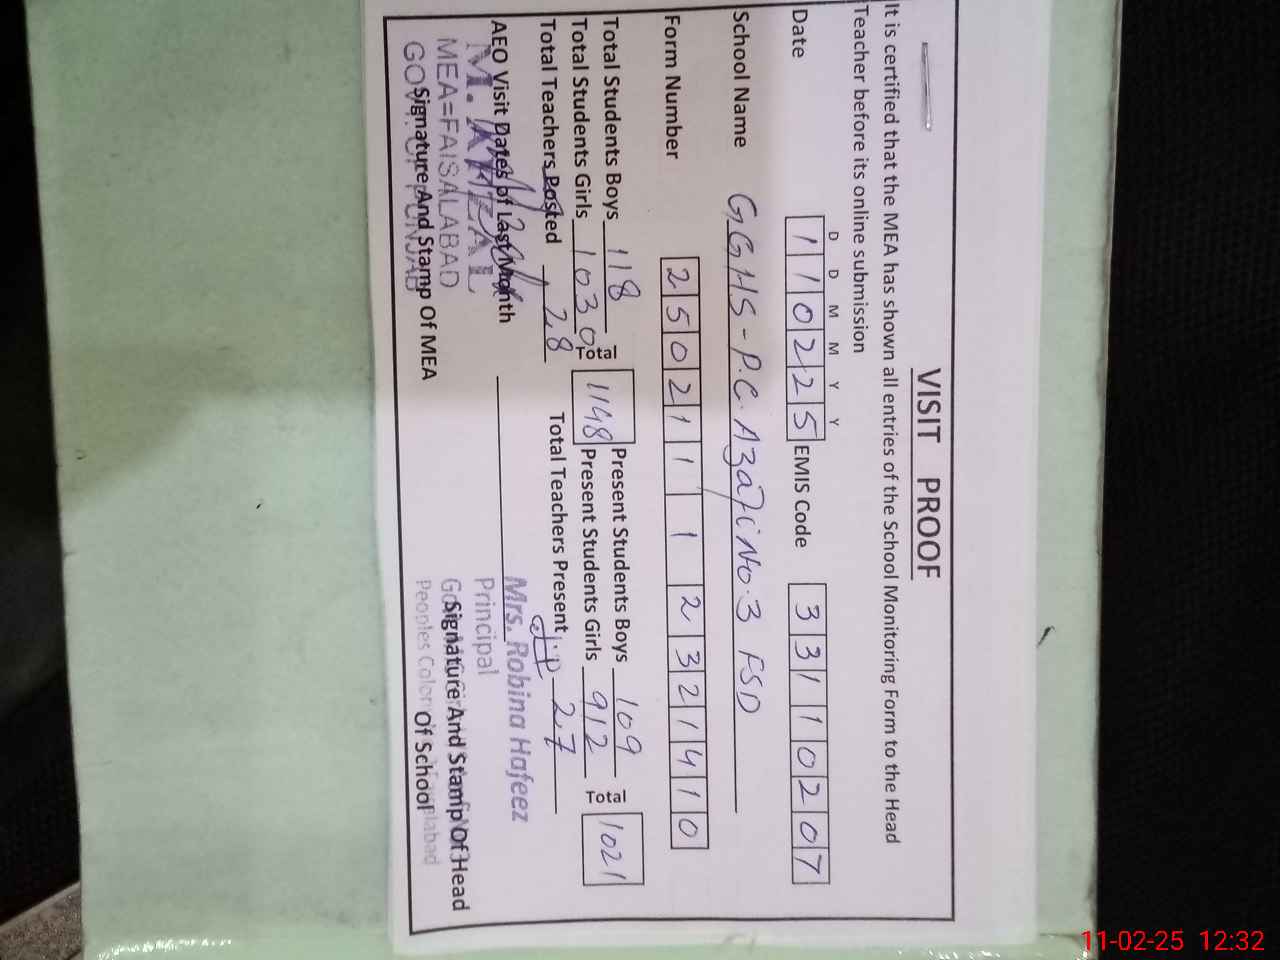 VISIT PROOF
It is certified that the MEA has shown all entries of the School Monitoring Form to the Head
Teacher before its online submission
D D M M Y Y
Date 110225 EMIS Code 33110207
School Name GGHS-P.C. No.3 FSD
Form Number 250211 1 2321410
Total Students Boys 118 Total 1148 Present Students Boys 109 Total 1021
Total Students Girls 1030 Present Students Girls 912
Total Teachers Posted 28 Total Teachers Present 27
AEO Visit Dates of Last Month
M. AFZAL
MEA=FAISALABAD
GOVT. OF PUNJAB
Signature And Stamp Of MEA
Mrs. Robina Hafeez
Principal
Peoples Colony
Signature And Stamp Of Head
Of School
11-02-25 12:32